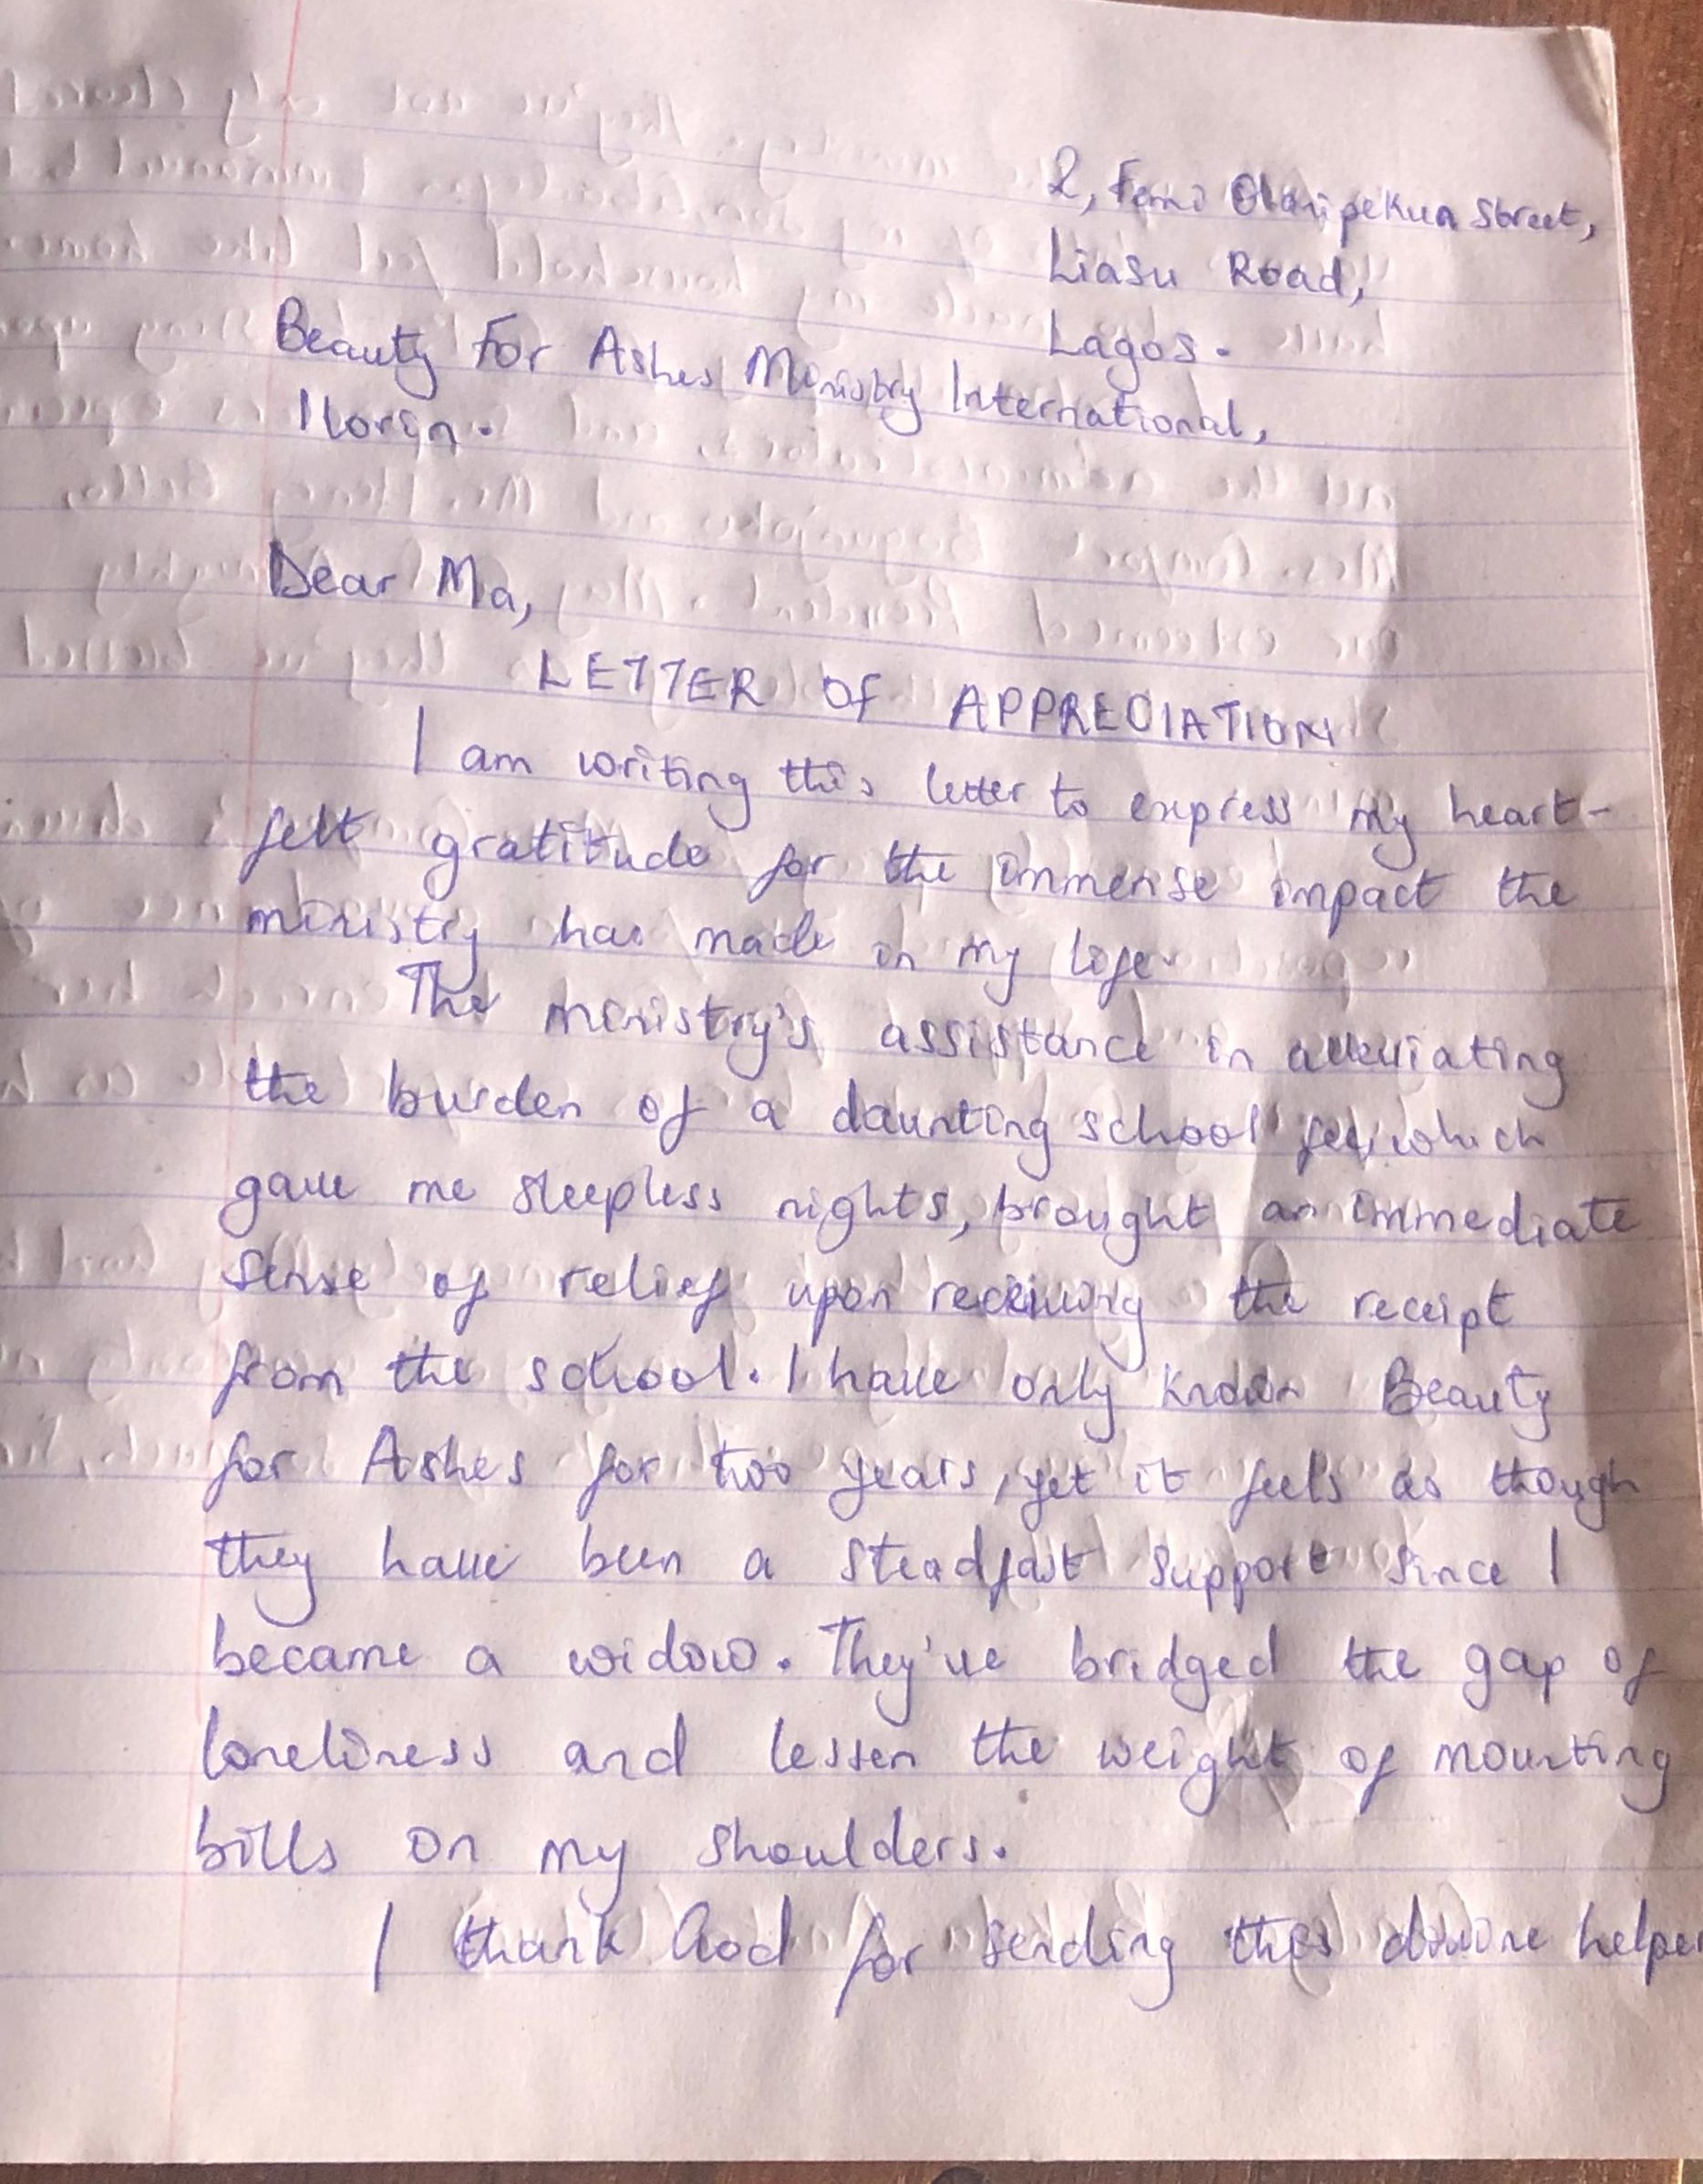 2, Femi Olanipekun Street,
Liasu Road,
Lagos.
Beauty For Ashes Ministry International,
Ilorin.
Dear Ma,
LETTER OF APPRECIATION
I am writing this letter to express my heart-
felt gratitude for the immense impact the
ministry has made in my life.
The ministry's assistance in alleviating
the burden of a daunting school fee, which
gave me sleepless nights, brought an immediate
sense of relief upon receiving the receipt
from the school. I have only known Beauty
for Ashes for two years, yet it feels as though
they have been a steadfast support since I
became a widow. They've bridged the gap of
loneliness and lessen the weight of mounting
bills on my shoulders.
I thank God for sending this divine helper